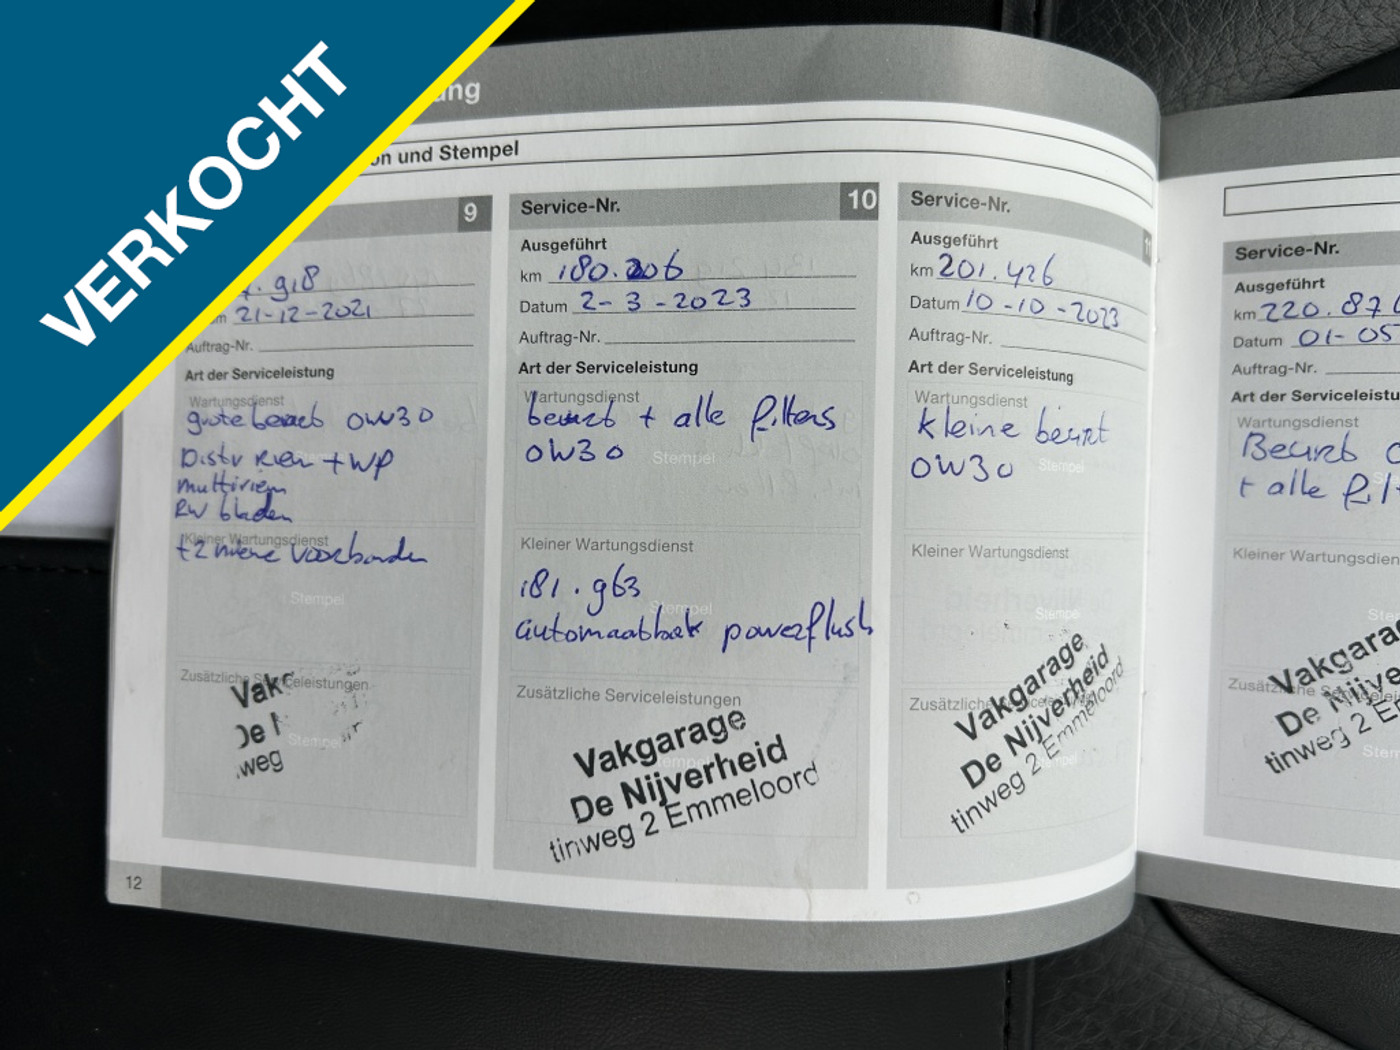 VERKOCHT
ung
on und Stempel
9
.918
21-12-2021
Auftrag-Nr.
Art der Serviceleistung
Wartungsdienst
grote beurt 0W30
Distr riem + WP
multiriem
RW bladen
Kleiner Wartungsdienst
+2 nieuwe voorbanden
Stempel
Zusätzliche Serviceleistungen
Vakg
De N
weg
Stempel
12
Service-Nr.
10
Ausgeführt
km 180.206
Datum 2-3-2023
Auftrag-Nr.
Art der Serviceleistung
Wartungsdienst
beurt + alle filters
0W30
Stempel
Kleiner Wartungsdienst
181.963
Stempel
automaatbak powerflush
Zusätzliche Serviceleistungen
Vakgarage
De Nijverheid
tinweg 2 Emmeloord
Service-Nr.
11
Ausgeführt
km 201.426
Datum 10-10-2023
Auftrag-Nr.
Art der Serviceleistung
Wartungsdienst
kleine beurt
0W30
Stempel
Kleiner Wartungsdienst
Stempel
Zusätzliche Serviceleistungen
Vakgarage
De Nijverheid
tinweg 2 Emmeloord
Service-Nr.
Ausgeführt
km 220.87
Datum 01-05
Auftrag-Nr.
Art der Serviceleistu
Wartungsdienst
Beurt
+ alle filt
Kleiner Wartungsdien
Ste
Zusätzliche Serviceleis
Vakgara
De Nijve
tinweg 2 E
Stem